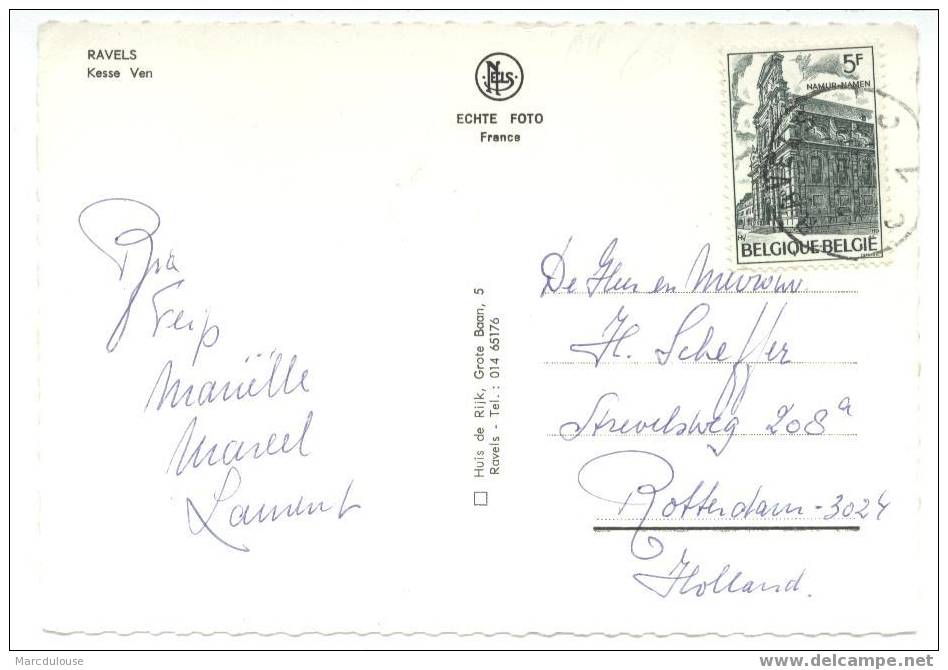 RAVELS
Kesse Ven
NELS
ECHTE FOTO
France
5F
NAMUR-NAMEN
BELGIQUE BELGIË
Ria
Mariëlle
Marcel
Laurent
Huis de Rijk, Grote Baan, 5
Ravels - Tel.: 014 65176
De Heer en Mevrouw
H. Scheffer
Strevelsweg 208a
Rotterdam - 3024
Holland.
Marcdulouse
delcampe.net